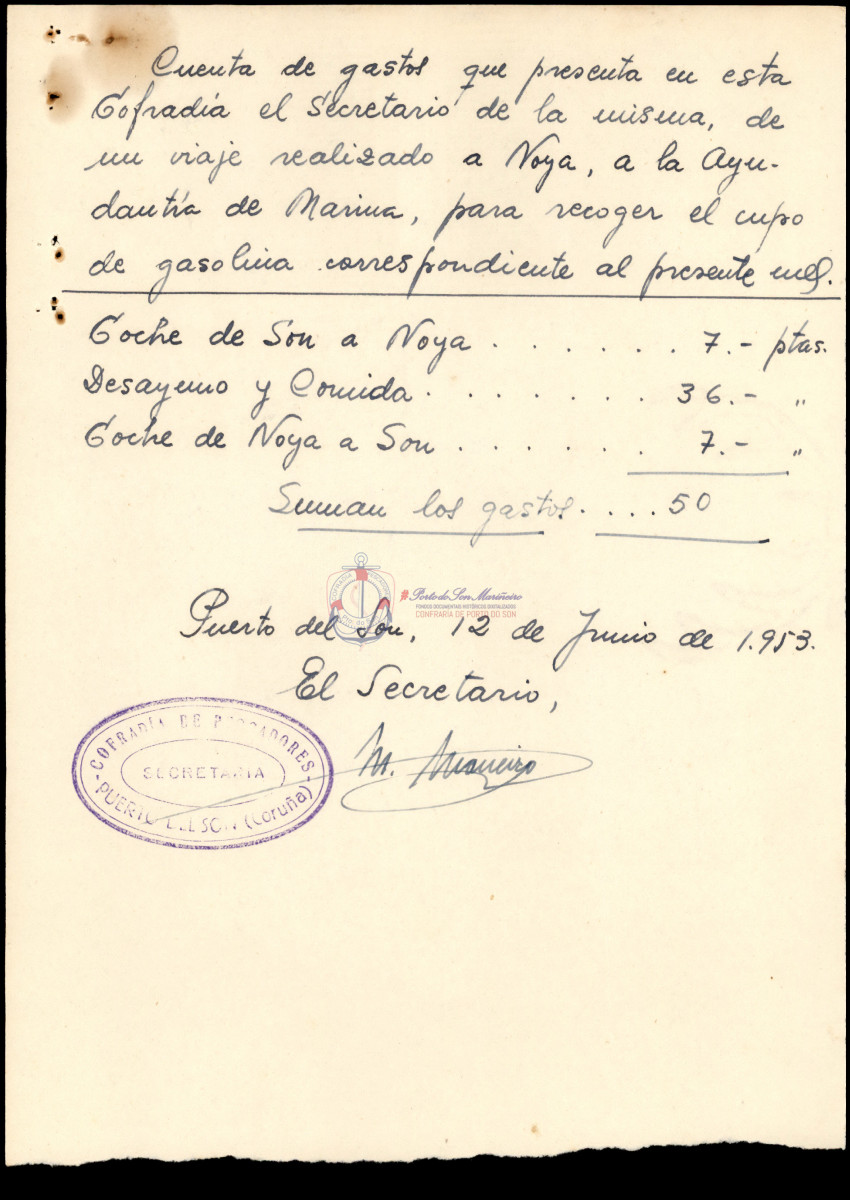 Cuenta de gastos que presenta en esta
Cofradía el Secretario de la misma, de
un viaje realizado a Noya, a la Ayu-
dantía de Marina, para recoger el cupo
de gasolina correspondiente al presente mes.
Coche de Son a Noya . . . . . . . 7.- ptas.
Desayuno y Comida . . . . . . . . 36.- "
Coche de Noya a Son . . . . . . . 7.- "
Suman los gastos. . . . . 50
COFRADÍA PESCADORES
#PortodoSon Mariñeiro
FONDOS DOCUMENTAIS HISTÓRICOS DIGITALIZADOS
CONFRARÍA DE PORTO DO SON
Puerto del Son, 12 de Junio de 1.953.
El Secretario,
COFRADÍA DE PESCADORES
SECRETARIA
PUERTO DEL SON (Coruña)
M.